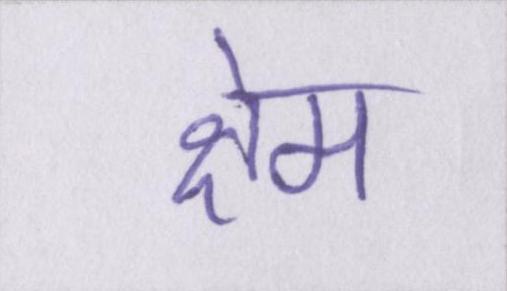 क्षेम